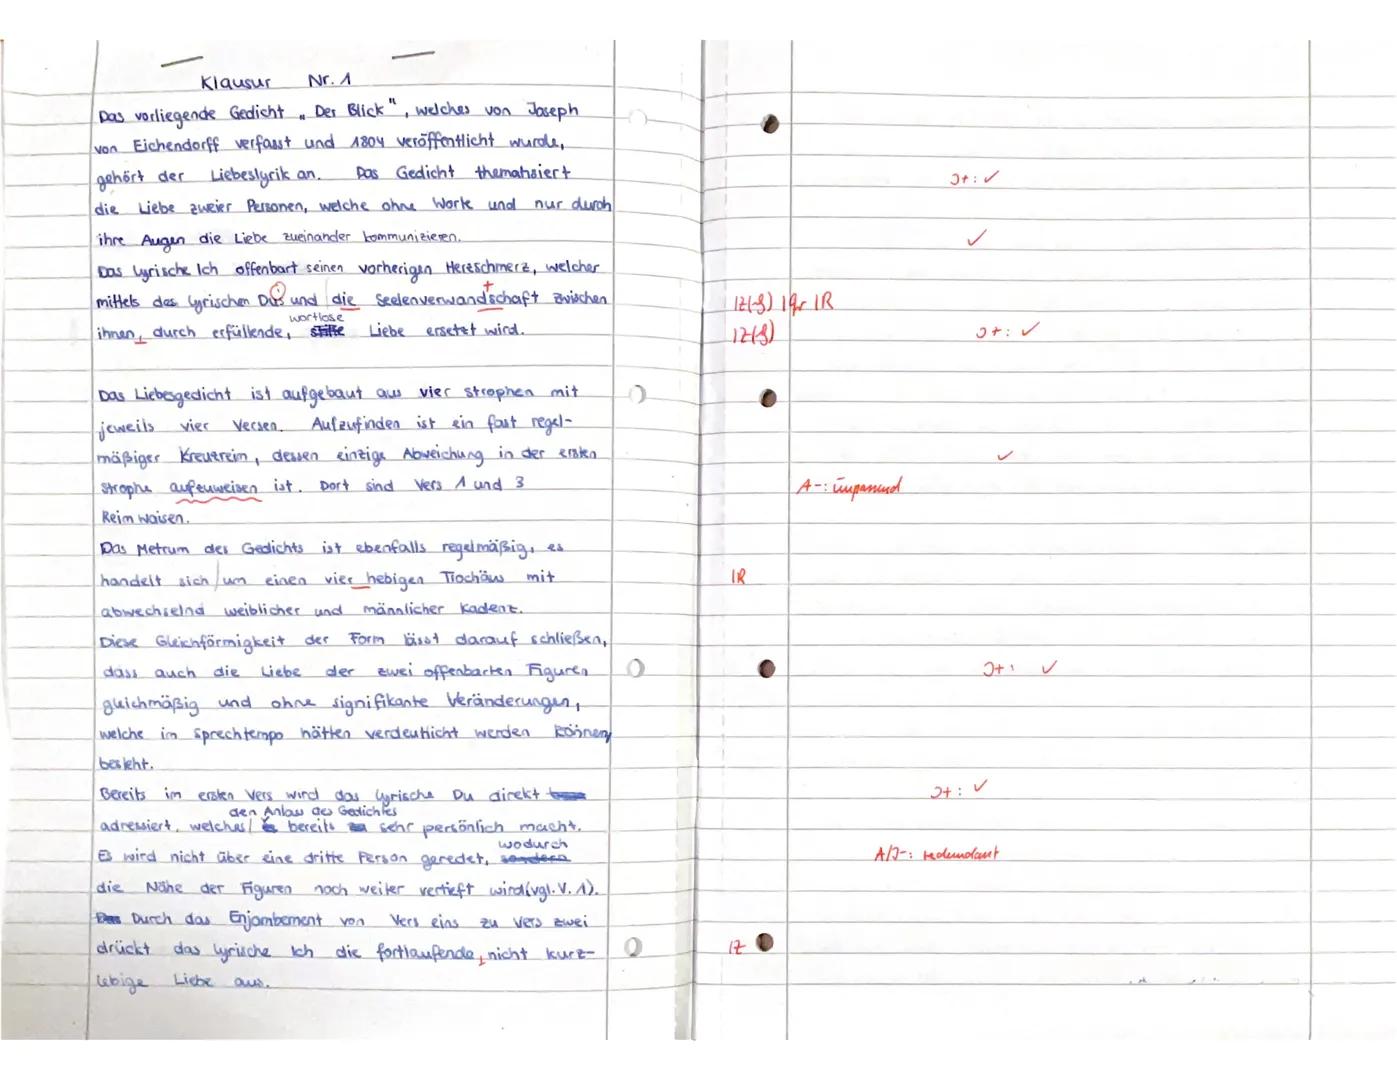 Klausur Nr. 1
Das vorliegende Gedicht „Der Blick“, welches von Joseph
von Eichendorff verfasst und 1804 veröffentlicht wurde,
gehört der Liebeslyrik an. Das Gedicht thematisiert
J+: ✓
die Liebe zweier Personen, welche ohne Worte und nur durch
ihre Augen die Liebe zueinander kommunizieren.
✓
Das lyrische Ich offenbart seinen vorherigen Herzschmerz, welcher
mittels des lyrischen Du's und die Seelenverwandtschaft zwischen
1Z(-S) 1Gr 1R
wortlose
ihnen, durch erfüllende, stille Liebe ersetzt wird.
1Z(-S) J+: ✓
Das Liebesgedicht ist aufgebaut aus vier Strophen mit
jeweils vier Versen. Aufzufinden ist ein fast regel-
mäßiger Kreuzreim, dessen einzige Abweichung in der ersten
✓
Strophe aufzuweisen ist. Dort sind Vers 1 und 3
A-: unpassend
Reim waisen.
Das Metrum des Gedichts ist ebenfalls regelmäßig, es
handelt sich um einen vier hebigen Trochäus mit
1R
abwechselnd weiblicher und männlicher Kadenz.
Diese Gleichförmigkeit der Form lässt darauf schließen,
dass auch die Liebe der zwei offenbarten Figuren
J+: ✓
gleichmäßig und ohne signifikante Veränderungen,
welche im Sprechtempo hätten verdeutlicht werden können,
besteht.
Bereits im ersten Vers wird das lyrische Du direkt
J+: ✓
den Anlass des Gedichtes
adressiert, welches bereits sehr persönlich macht.
wodurch
Es wird nicht über eine dritte Person geredet, sondern
A/J-: redundant
die Nähe der Figuren noch weiter vertieft wird (vgl. V. 1).
Durch das Enjambement von Vers eins zu Vers zwei
drückt das lyrische Ich die fortlaufende, nicht kurz-
1Z
lebige Liebe aus.